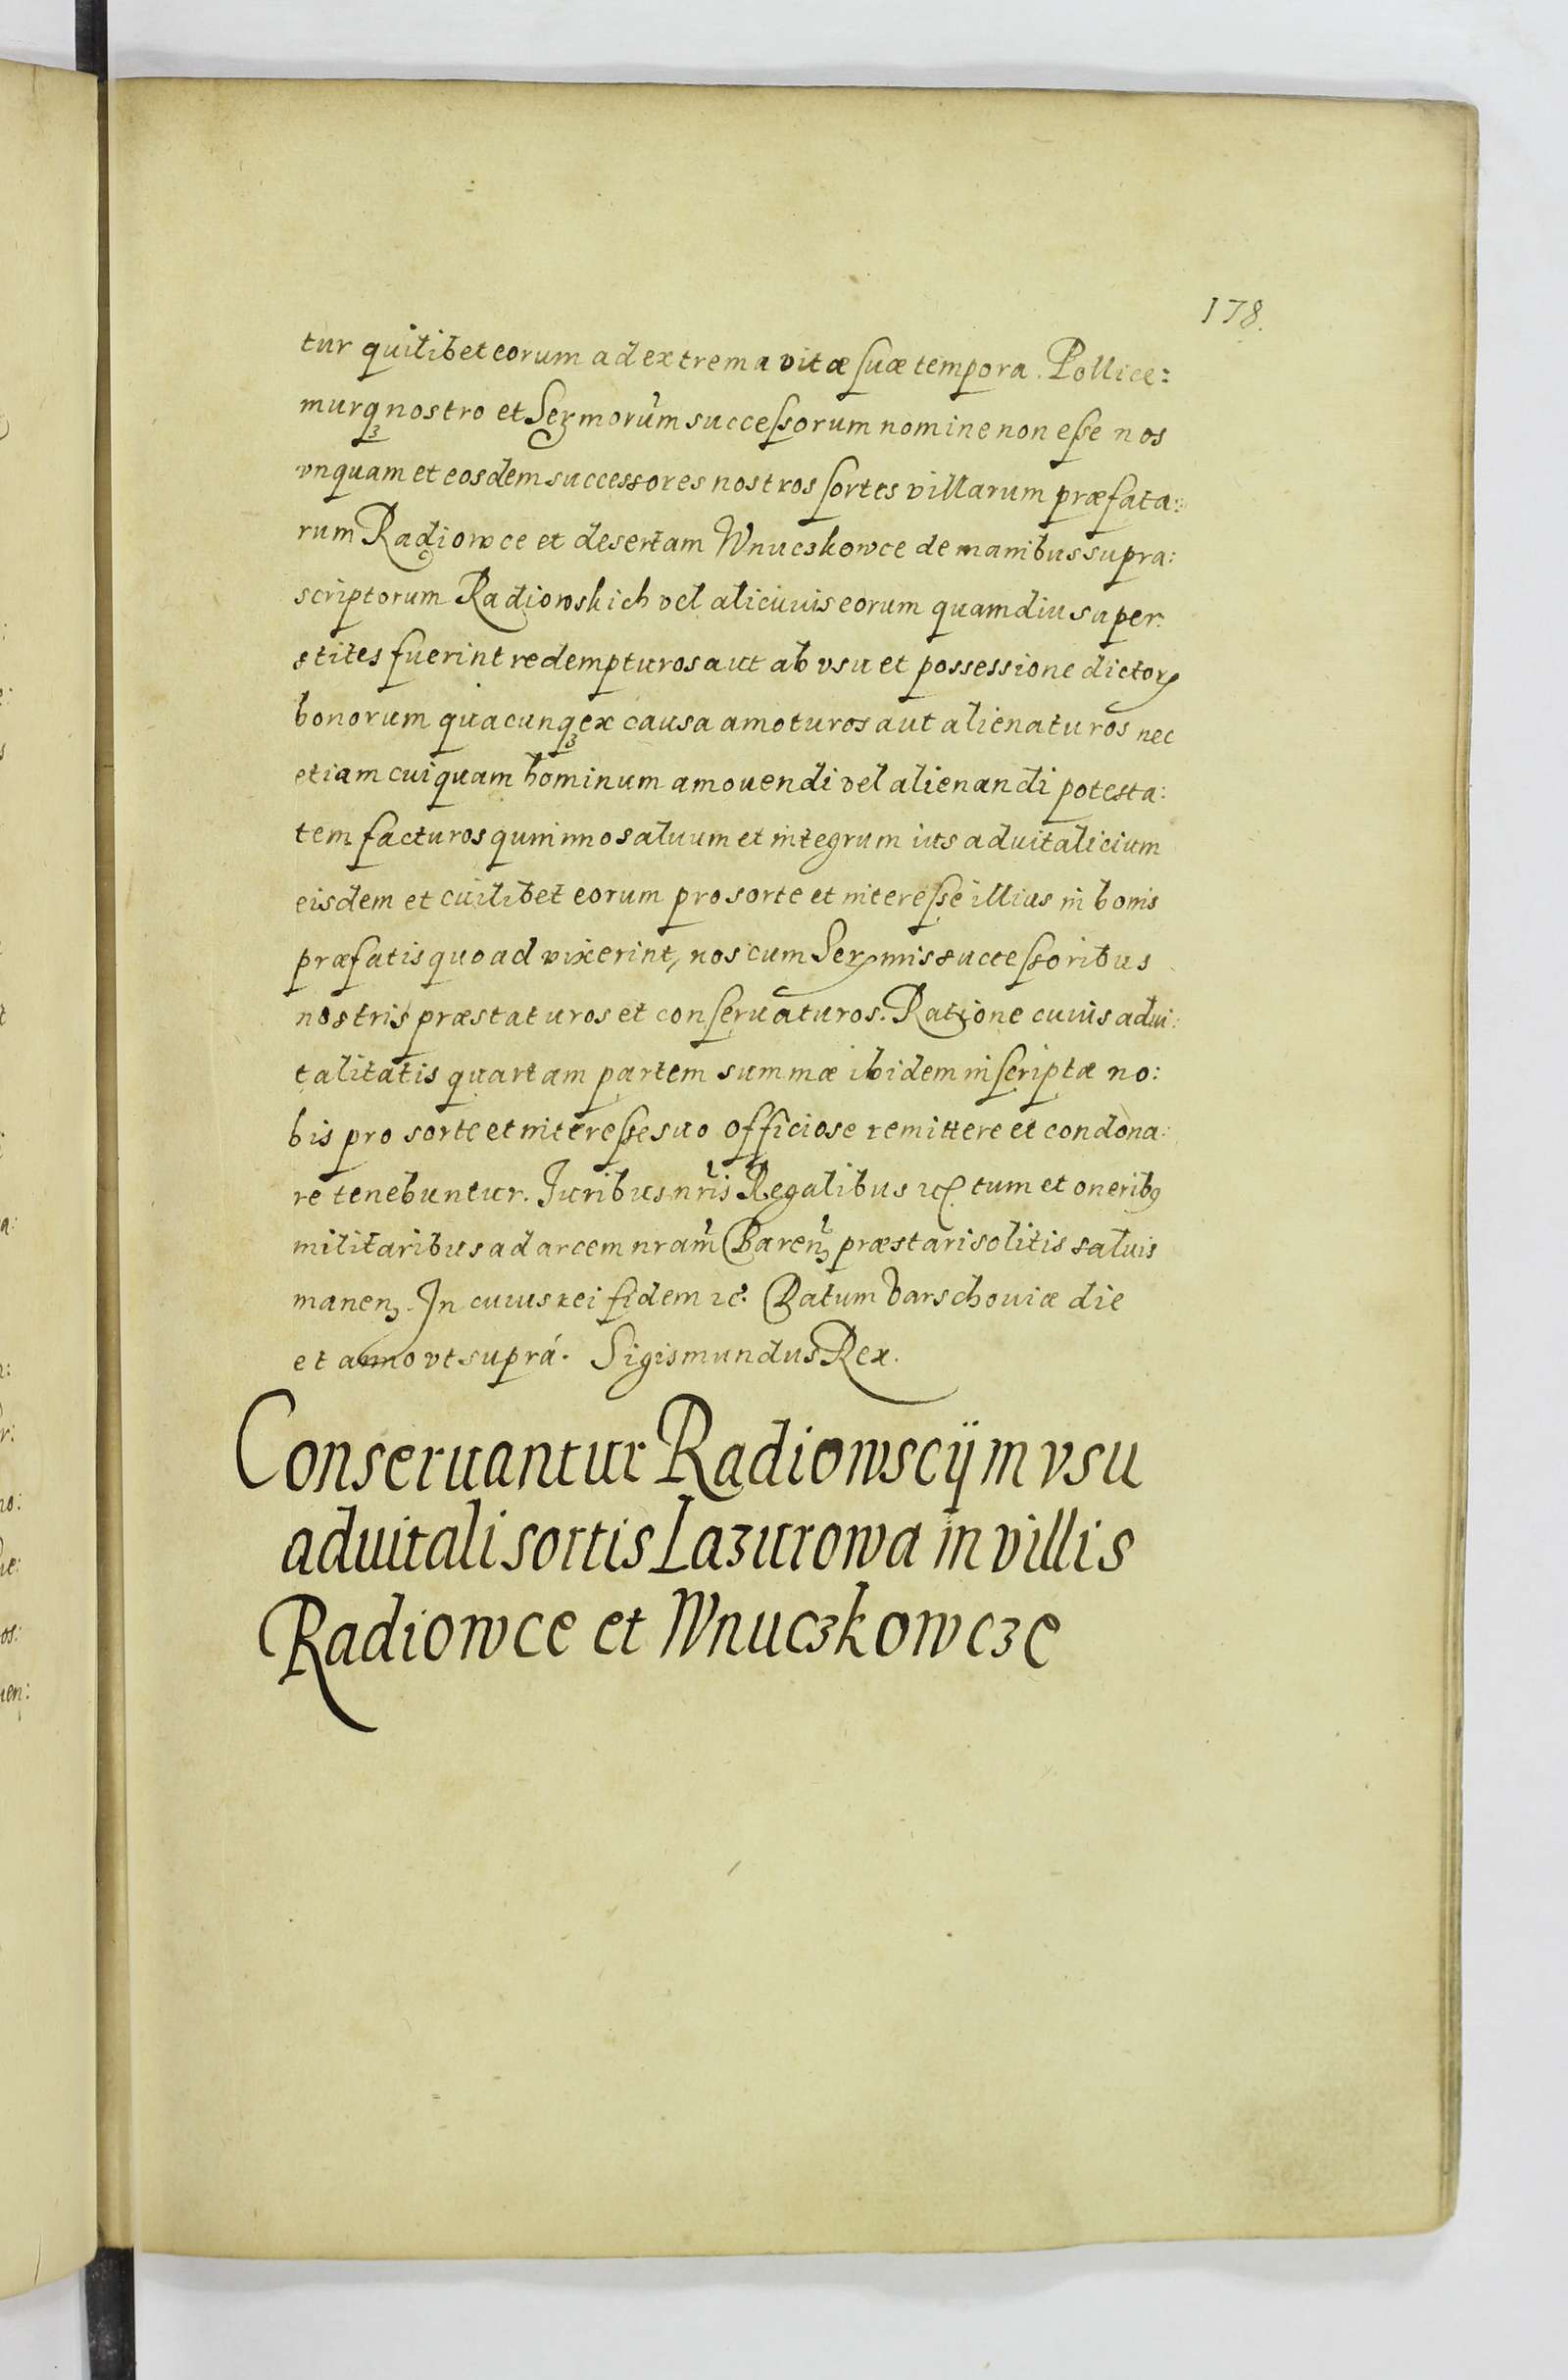 178.
tur quilibet eorum ad extrema vitæ suæ tempora. Pollice:
murqꝫ nostro et Serꝫmorum̃ successorum nomine non esse nos
vnquam et eosdem successores nostros sortes villarum præfata:
rum Radiowce et desertam Wnuczkowce de manibus supra:
scriptorum Radiowskich vel alicuius eorum quamdiu super:
stites fuerint redempturos aut ab vsu et possessione dictorꝝ
bonorum quacunqꝫ ex causa amoturos aut alienaturos nec
etiam cuiquam hominum amouendi vel alienandi potesta:
tem facturos quinimo saluum et integrum ius aduitalicium
eisdem et cuilibet eorum pro sorte et interesse illius in bonis
præfatis quoad vixerint, nos cum Serꝫmis successoribus
nostris præstaturos et conseruaturos. Ratione cuius adui:
talitatis quartam partem summæ ibidem inscriptæ no:
bis pro sorte et interesse suo officiose remittere et condona:
re tenebuntur. Juribus nr̃is Regalibus ꝛc. tum et oneribꝰ
militaribus ad arcem nram̃ Barenꝫ præstari solitis saluis
manenꝫ. In cuius rei fidem ꝛc. Datum Varschouiæ die
et anno vt suprá. Sigismundus Rex.
Conseruantur Radiowscij in vsu
aduitali sortis Lazurowa in villis
Radiowce et Wnuczkowcze